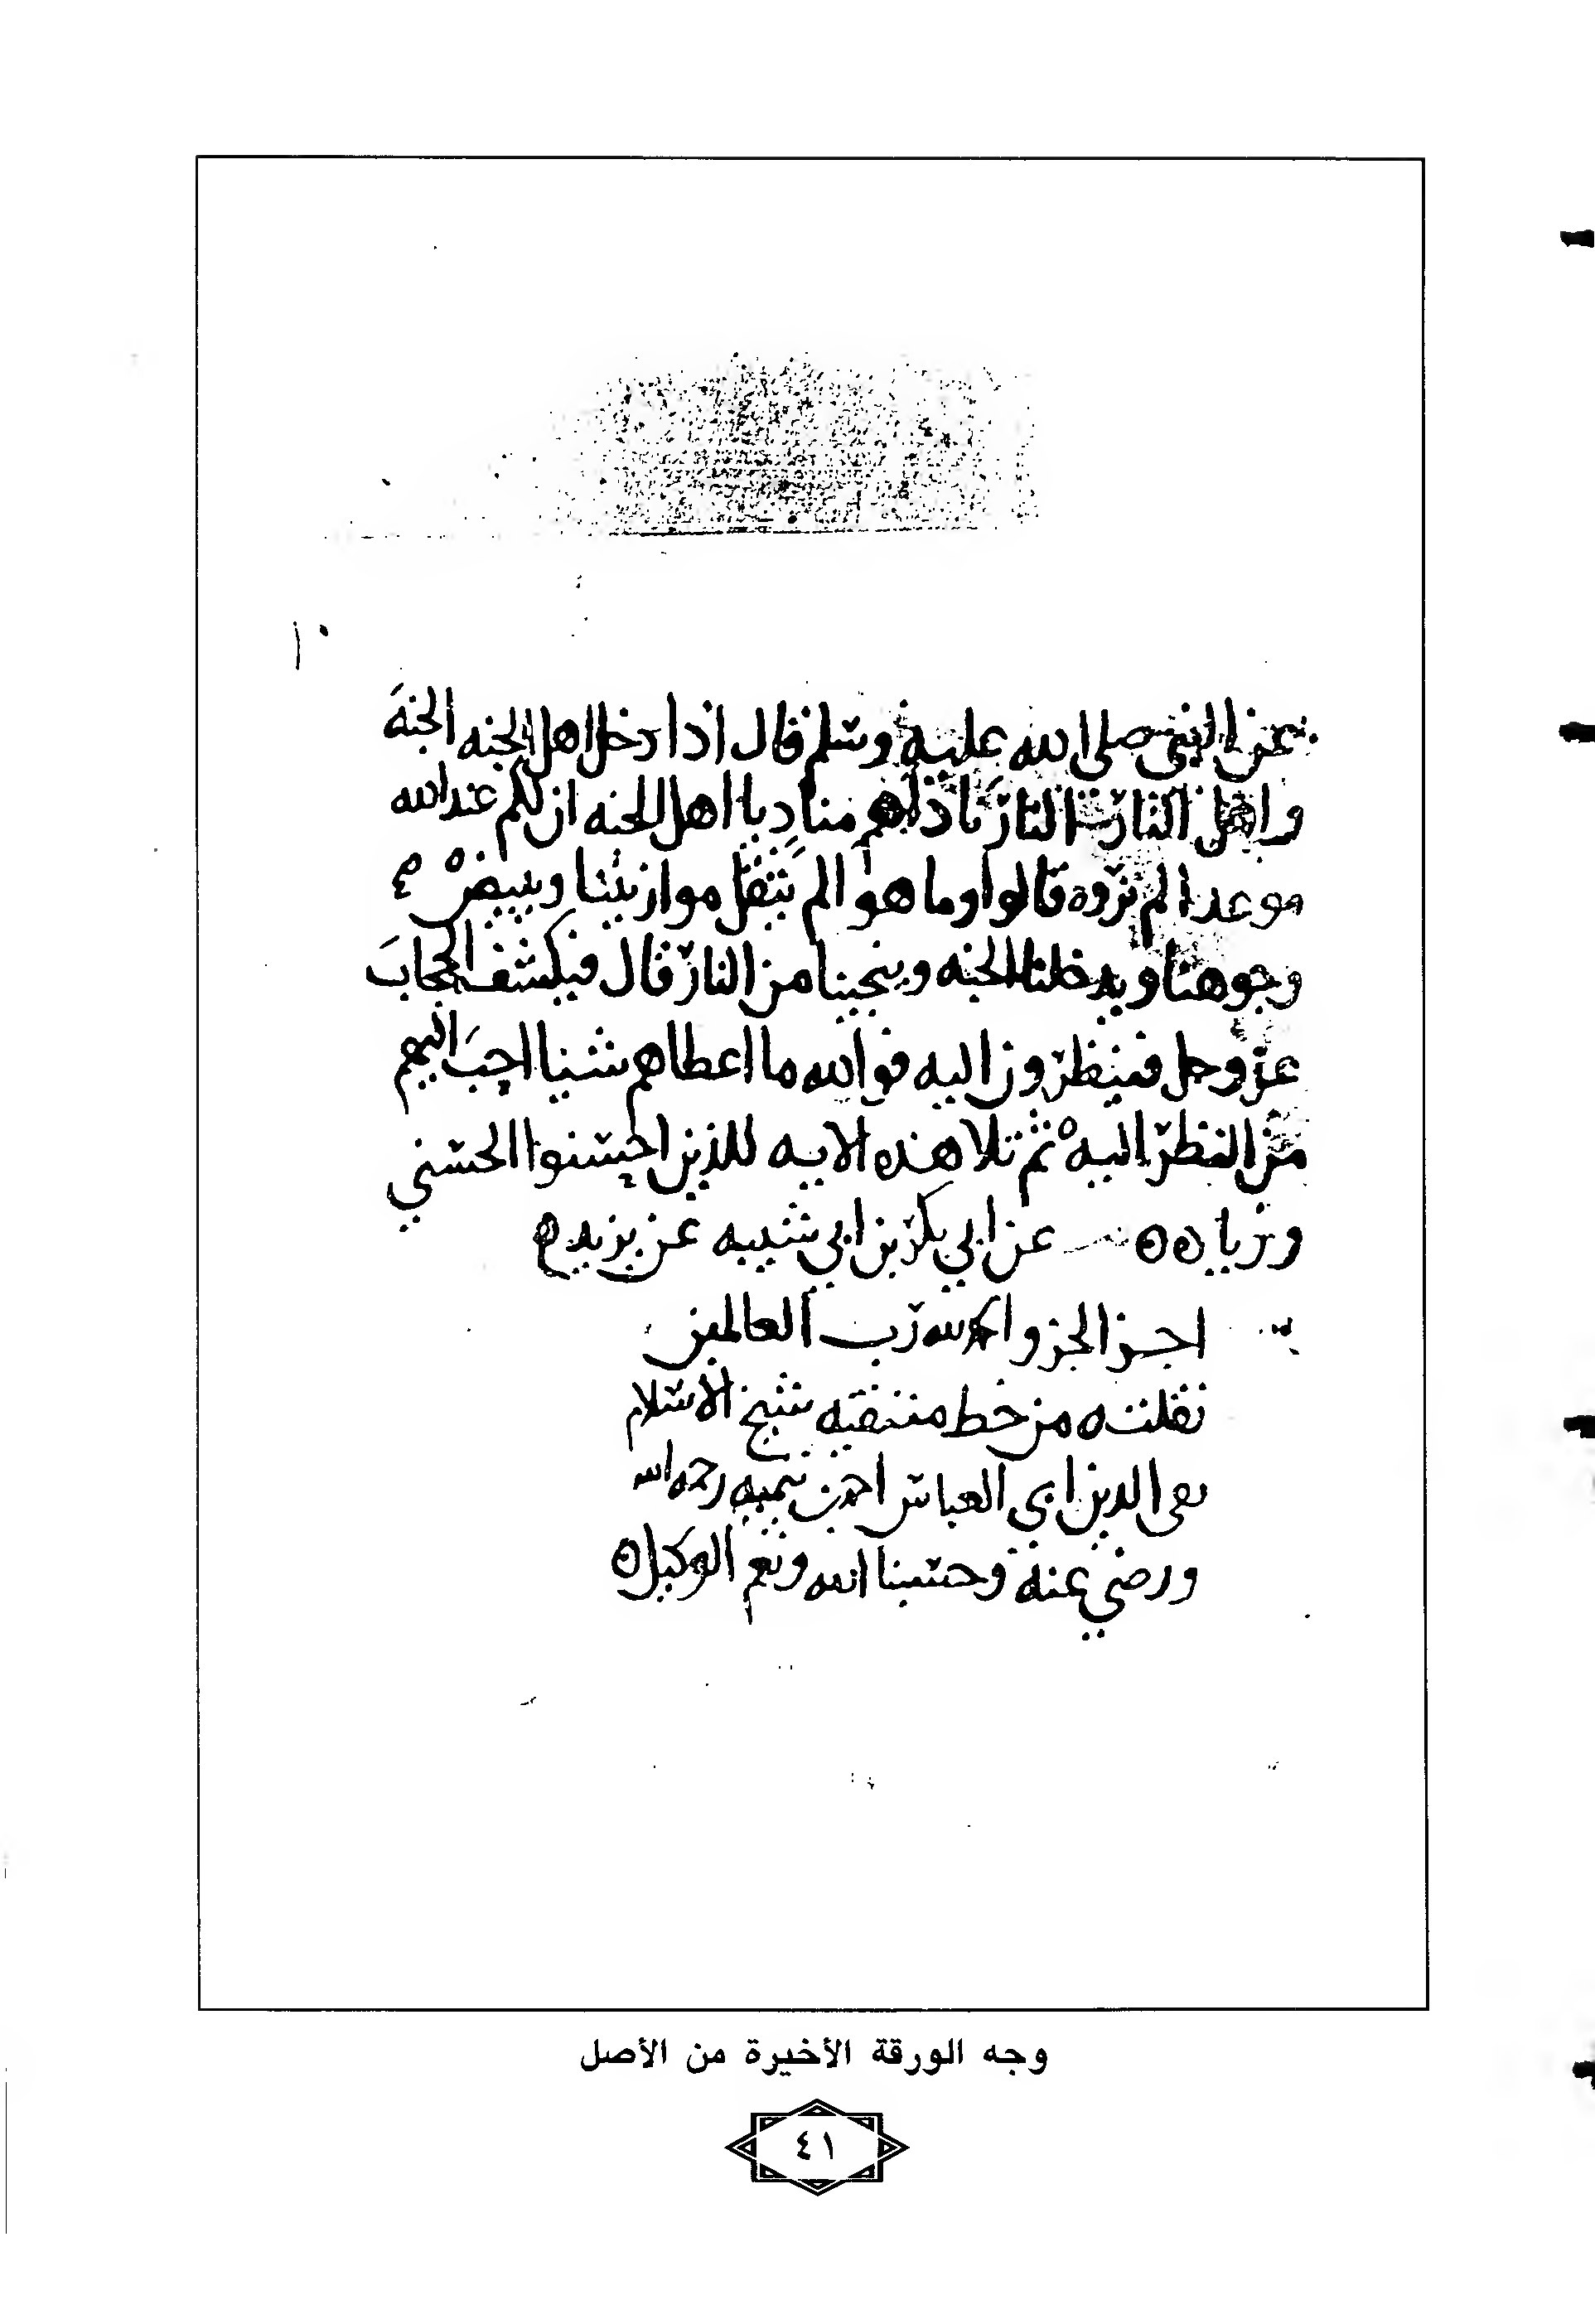 عن النبي صلى الله عليه وسلم قال اذا دخل اهل الجنه الجنة
واهل النار النار ناداهم مناد يا اهل الجنه ان لكم عند الله
موعدا لم تروه قالوا وما هو الم يثقل موازيننا ويبيض
وجوهنا ويدخلنا الجنه وينجينا من النار قال فيكشف الحجاب
عز وجل فينظرون اليه فوالله ما اعطاهم شيا احب اليهم
من النظر اليه ثم تلا هذه الايه للذين احسنوا الحسنى
وزياده عن ابي بكر بن ابي شيبه عن يزيد
اخر الجزو الحمد لله رب العالمين
نقلته من خط منتقيه شيخ الاسلام
تقى الدين ابي العباس احمد بن تيميه رحمه الله
ورضي عنه وحسبنا الله ونعم الوكيل
وجه الورقة الأخيرة من الأصل
٤١